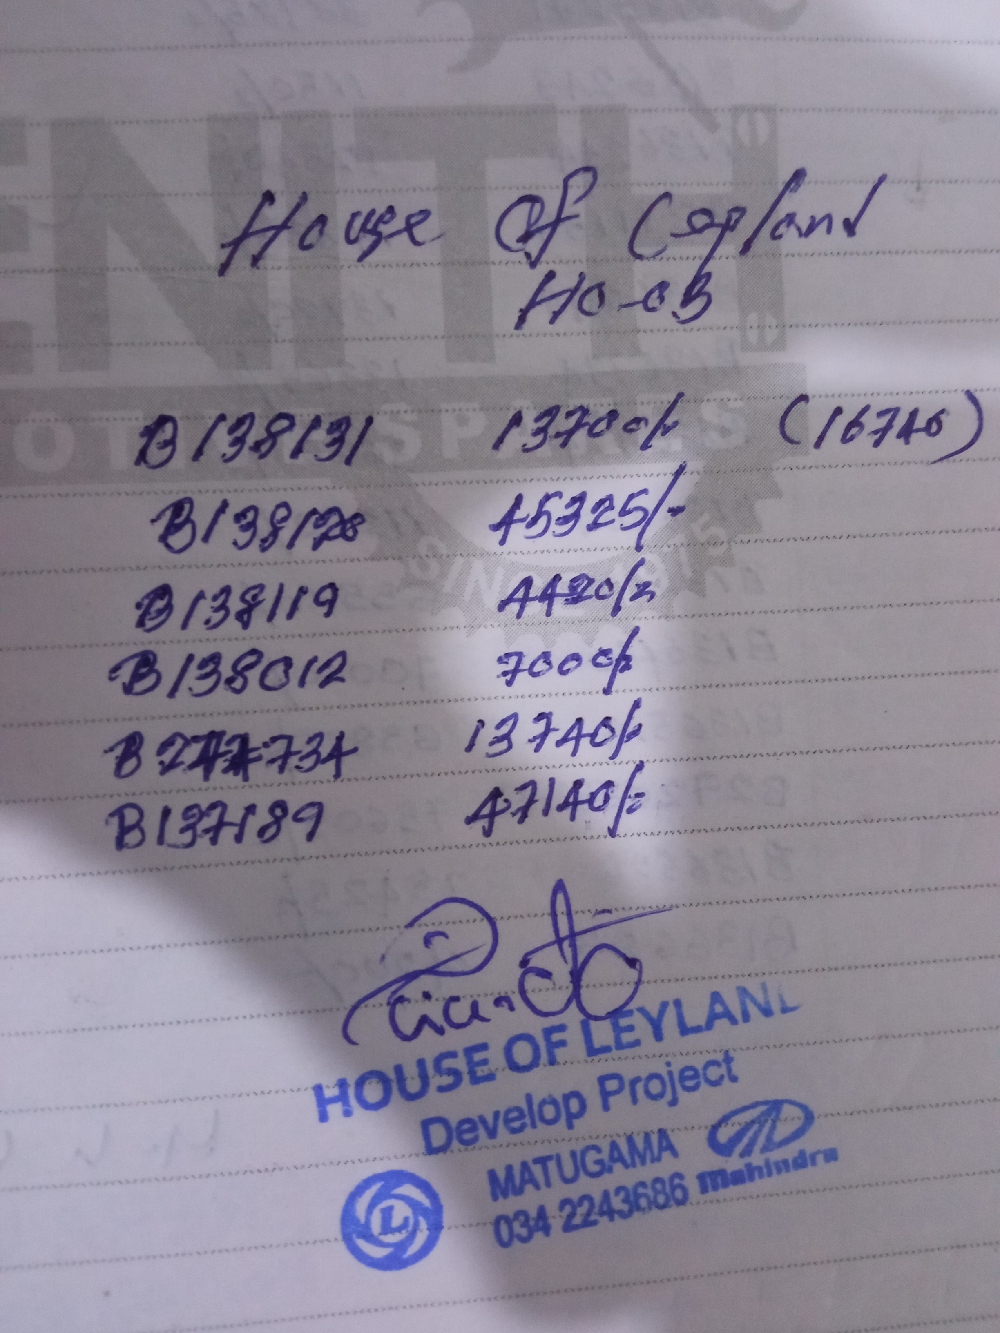 ENITH
House Of Leyland
HO-03
OTOR SPARES
B138131 13700/- (16740)
B138128 45325/-
B138119 4420/-
B138012 7000/-
734 13740/-
B137189 47140/-
SINCE
HOUSE OF LEYLAND
Develop Project
MATUGAMA
034 2243686 Mahindra
L